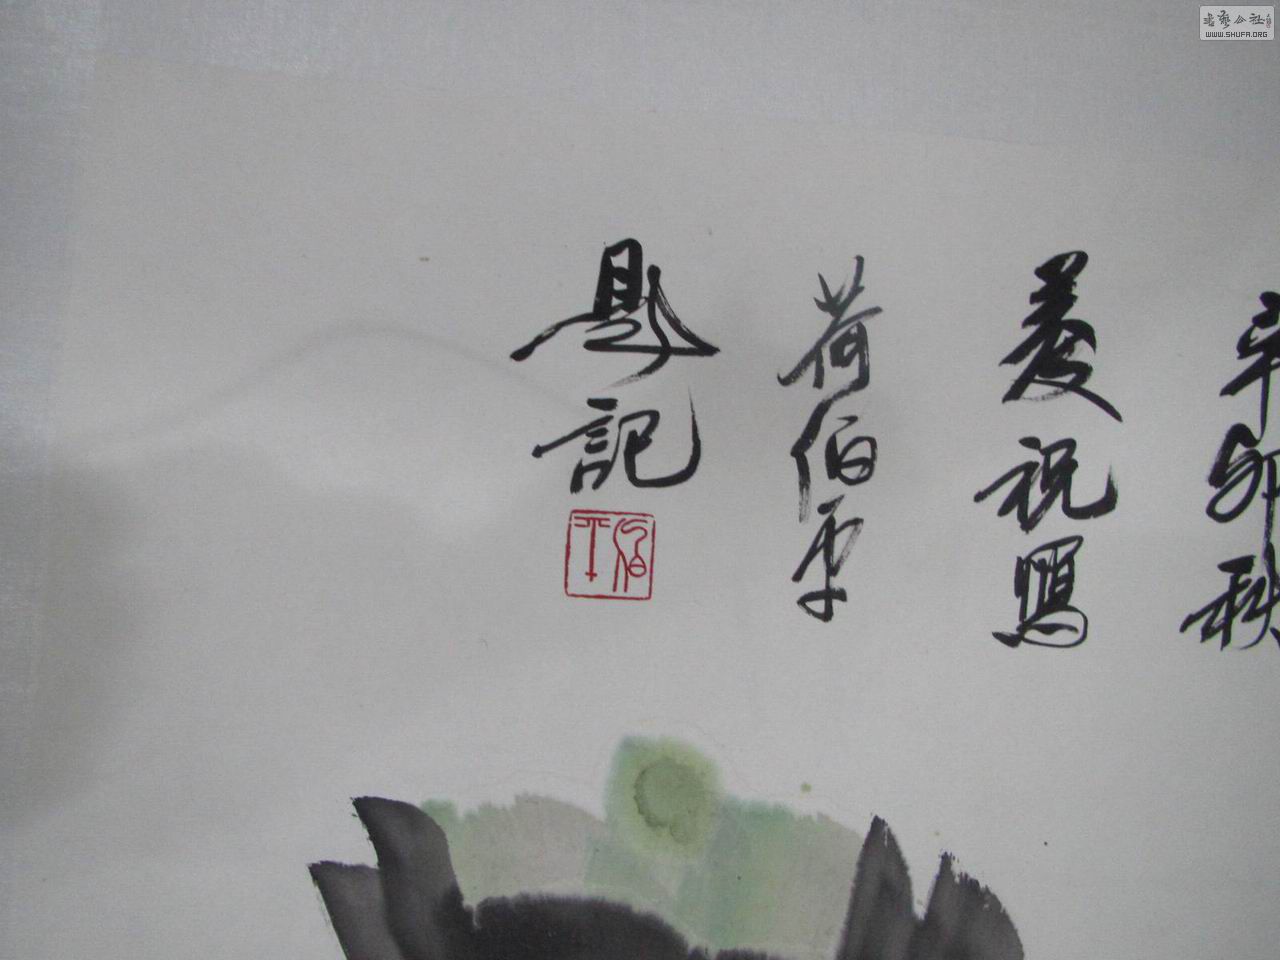 辛卯秋
菱祝照
荷伯平
題記
伯平
書藝公社
WWW.SHUFA.ORG